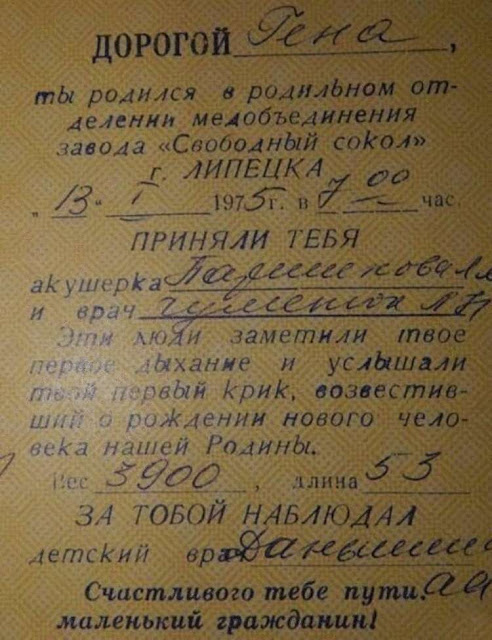 ДОРОГОЙ Гена,
ты родился в родильном от-
делении медобъединения
завода «Свободный сокол»
г. ЛИПЕЦКА
„13" I 1975 г. в 7 00 час.
ПРИНЯЛИ ТЕБЯ
акушерка
и врач
Эти люди заметили твое
первое дыхание и услышали
твой первый крик, возвестив-
ший о рождении нового чело-
века нашей Родины.
Вес 3900, длина 53
ЗА ТОБОЙ НАБЛЮДАЛ
детский врач
Счастливого тебе пути,
маленький гражданин!